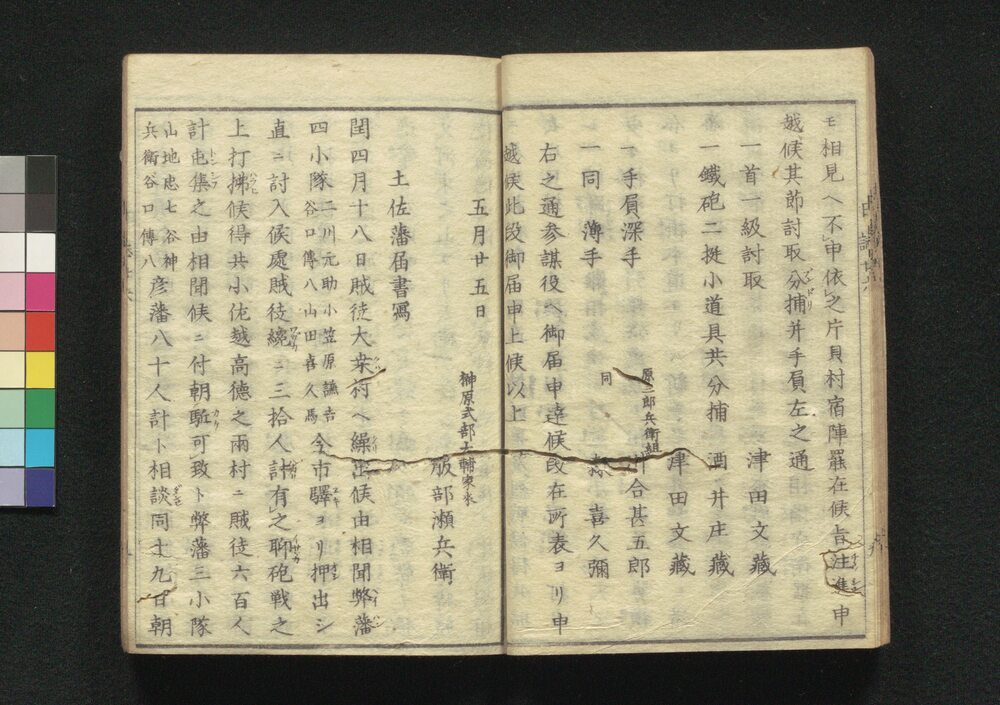 モ相見ヘ不申依之片貝村宿陣罷在候旨注進申
越候其節討取分捕并手負左之通
一首一級討取 津田文藏
一鐵砲二挺小道具共分捕 酒井庄藏
原三郎兵衛組
一手負深手 川合甚五郎
同
一同薄手 津田文藏
喜久彌
右之通参謀役ヘ御届申達候段在所表ヨリ申
越候此段御届申上候以上
榊原式部大輔家来
五月廿五日 服部瀬兵衛
土佐藩届書寫
閏四月十八日賊徒大桒村ヘ繰出候由相聞弊藩
四小隊二川元助小笠原謙吉
谷口傳八山田喜久馬今市驛ヨリ押出シ
直ニ討入候處賊徒纔ニ三拾人計有之聊砲戦之
上打拂候得共小佐越高德之兩村ニ賊徒六百人
計屯集之由相聞候ニ付朝駈可致ト弊藩三小隊
山地忠七谷神
兵衛谷口傳八彦藩八十人計ト相談同十九日朝